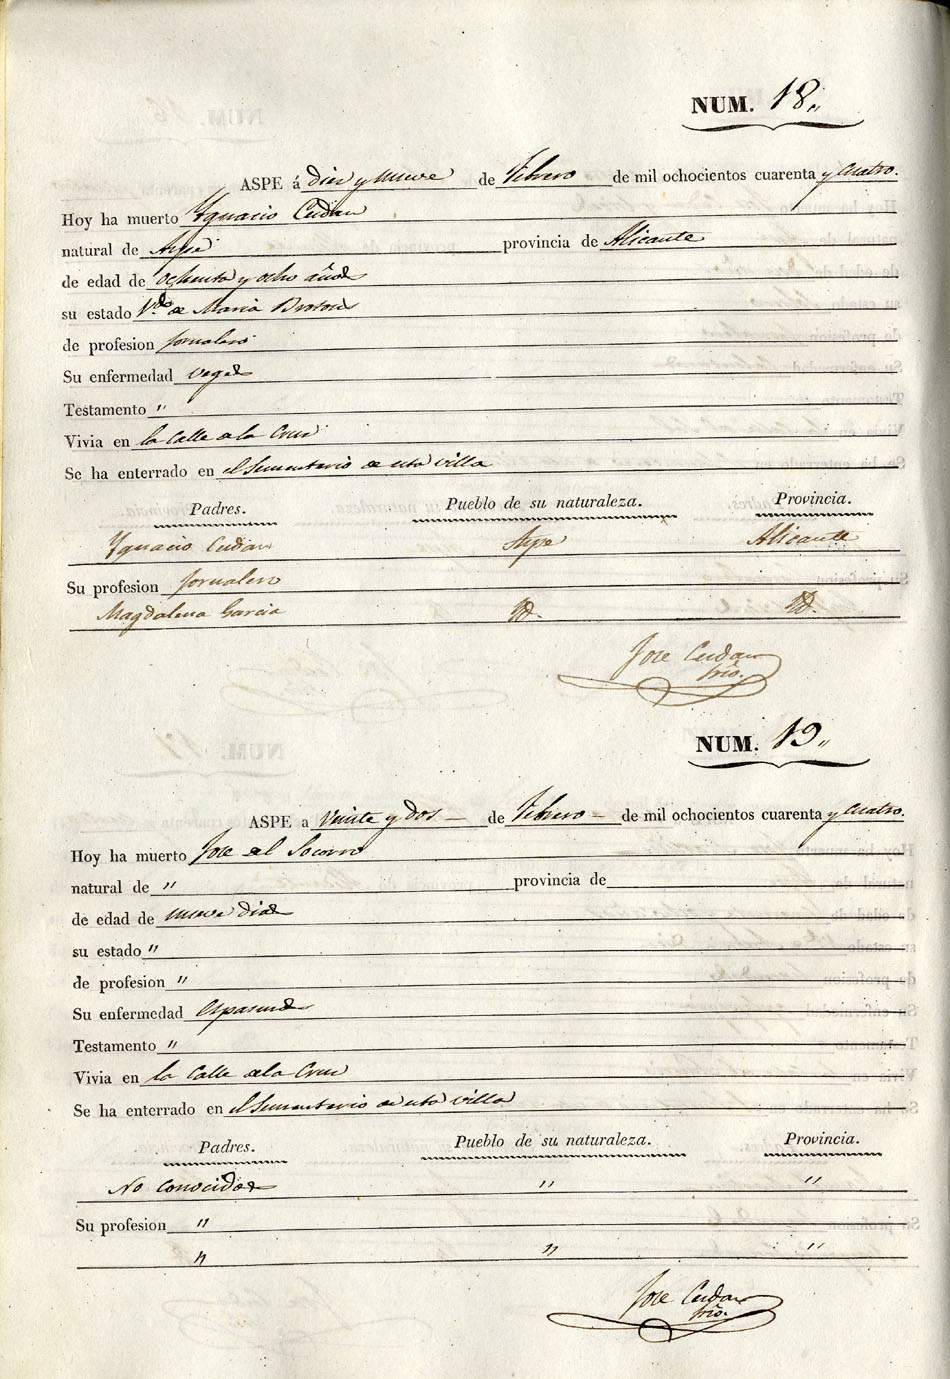 NUM. 18„
ASPE á diez y nueve de Febrero de mil ochocientos cuarenta y cuatro.
Hoy ha muerto Ygnacio Cerdan
natural de Aspe provincia de Alicante
de edad de ochenta y ocho años
su estado V.do de Maria
de profesion jornalero
Su enfermedad vegez
Testamento "
Vivia en la Calle de la Cruz
Se ha enterrado en el Sementerio de esta villa
Padres. Pueblo de su naturaleza. Provincia.
Ygnacio Cerdan Aspe Alicante
Su profesion Jornalero
Magdalena Garcia Yd. Yd.
Jose Cerdan
Srio.
NUM. 19„
ASPE a veinte y dos de Febrero de mil ochocientos cuarenta y cuatro.
Hoy ha muerto Jose del Socorro
natural de " provincia de
de edad de nueve dias
su estado "
de profesion "
Su enfermedad
Testamento "
Vivia en la Calle de la Cruz
Se ha enterrado en el Sementerio de esta villa
Padres. Pueblo de su naturaleza. Provincia.
No conocidos " "
Su profesion "
" " "
Jose Cerdan
Srio.